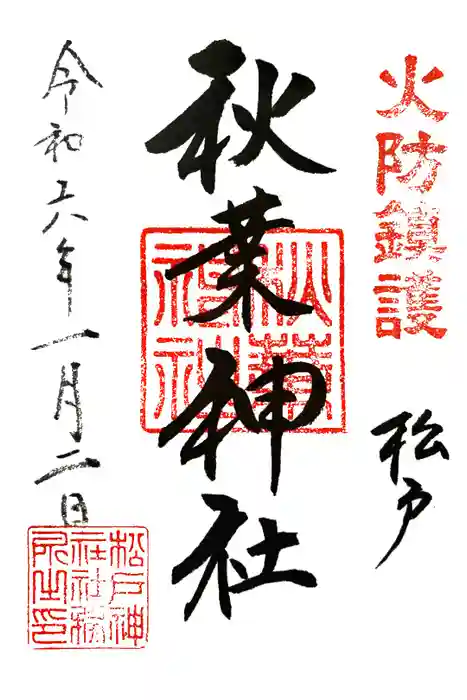 火防鎮護
松戸
秋葉神社
秋葉神社
令和六年一月二日
松戸神社社務所之印